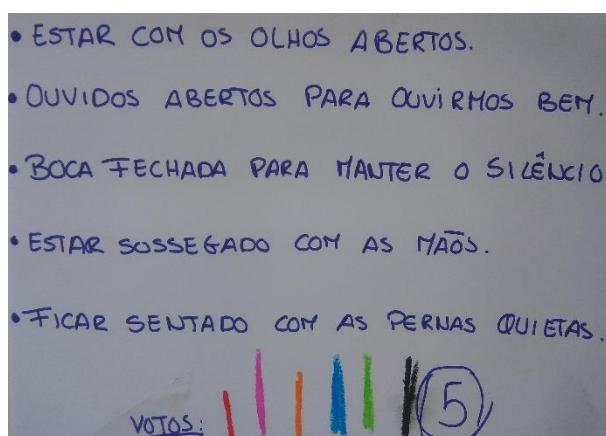 • ESTAR COM OS OLHOS ABERTOS.
• OUVIDOS ABERTOS PARA OUVIRMOS BEM.
• BOCA FECHADA PARA MANTER O SILÊNCIO
• ESTAR SOSSEGADO COM AS MAÕS.
• FICAR SENTADO COM AS PERNAS QUIETAS.
VOTOS: 5